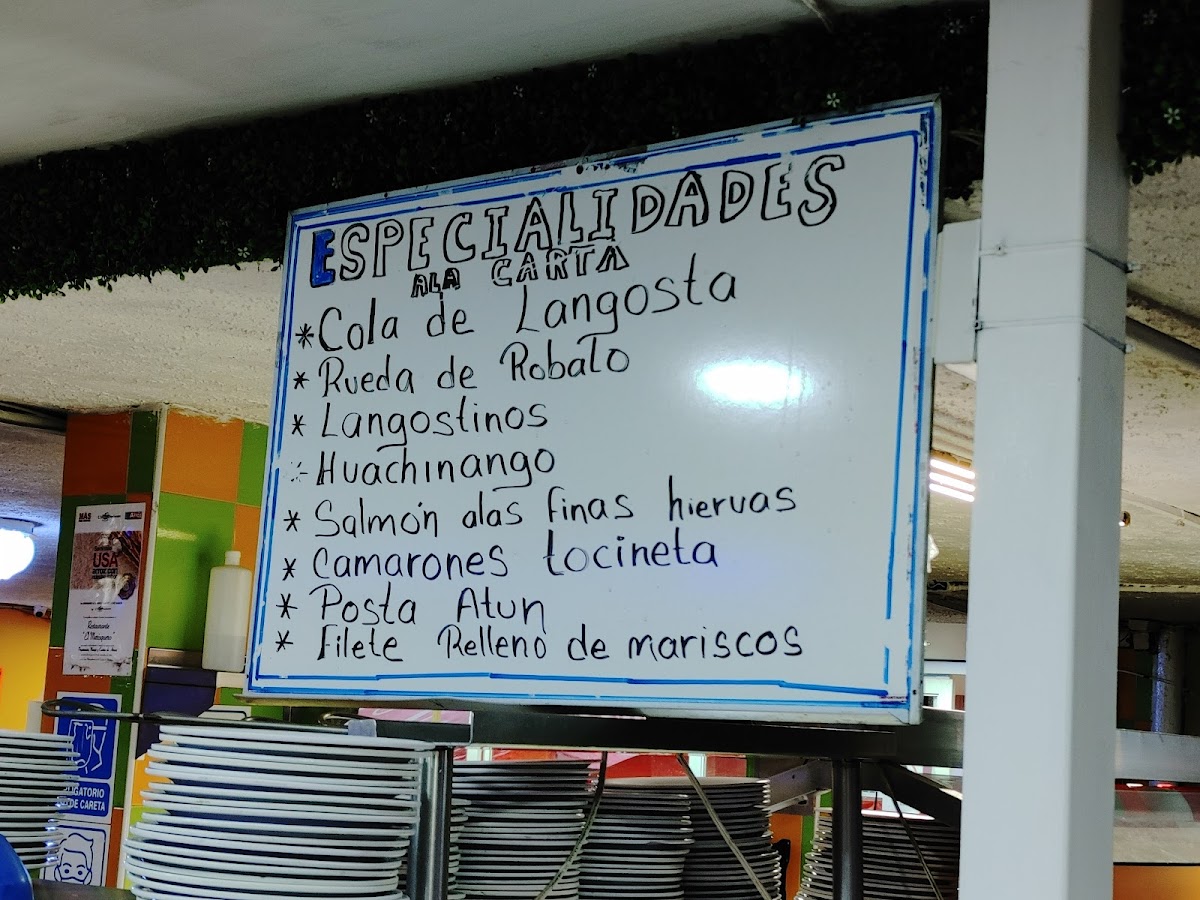 ESPECIALIDADES
ALA CARTA
*Cola de Langosta
* Rueda de Robalo
* Langostinos
* Huachinango
* Salmón alas finas hiervas
* Camarones tocineta
* Posta Atun
* Filete Relleno de mariscos
USA
Restaurante
DE CARETA